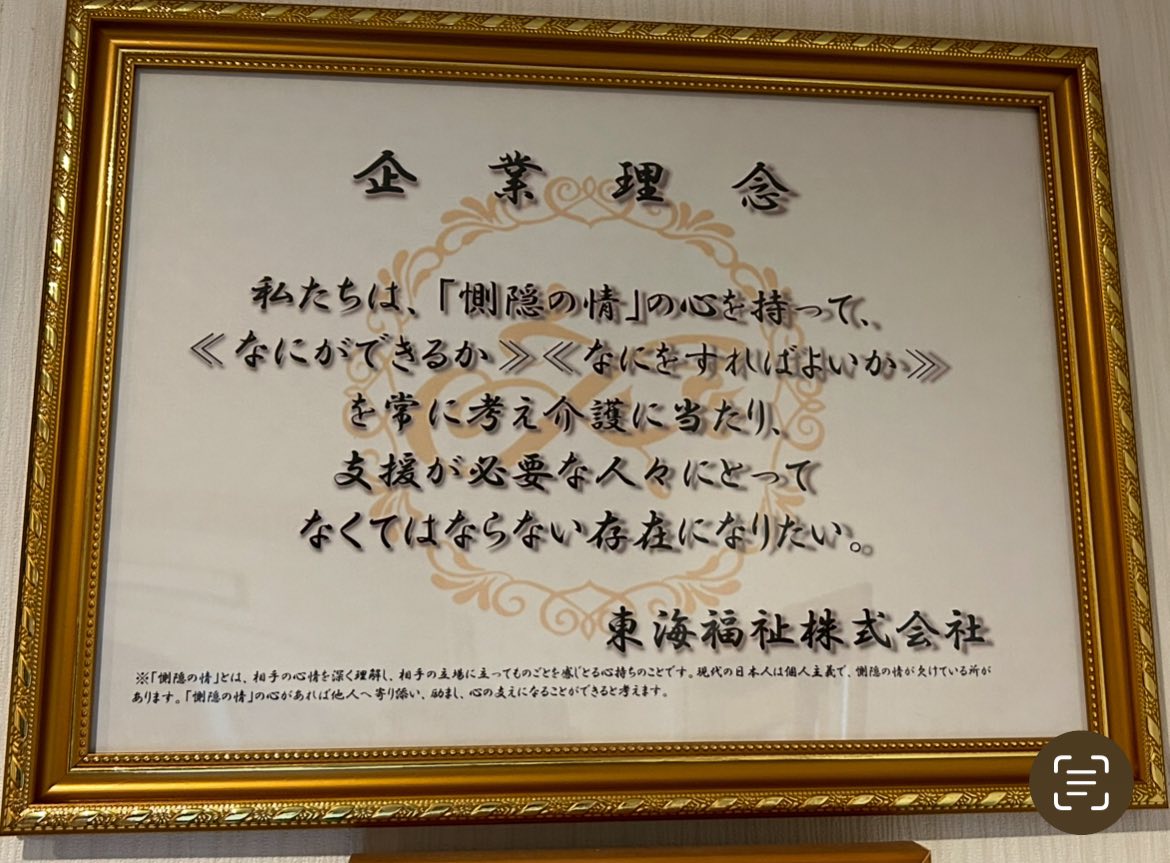 企業理念
私たちは、「惻隠の情」の心を持って、
≪なにができるか≫≪なにをすればよいか≫
を常に考え介護に当たり、
支援が必要な人々にとって
なくてはならない存在になりたい。
東海福祉株式会社
※「惻隠の情」とは、相手の心情を深く理解し、相手の立場に立ってものごとを感じとる心持ちのことです。現代の日本人は個人主義で、惻隠の情が欠けている所が
あります。「惻隠の情」の心があれば他人へ寄り添い、励まし、心の支えになることができると考えます。